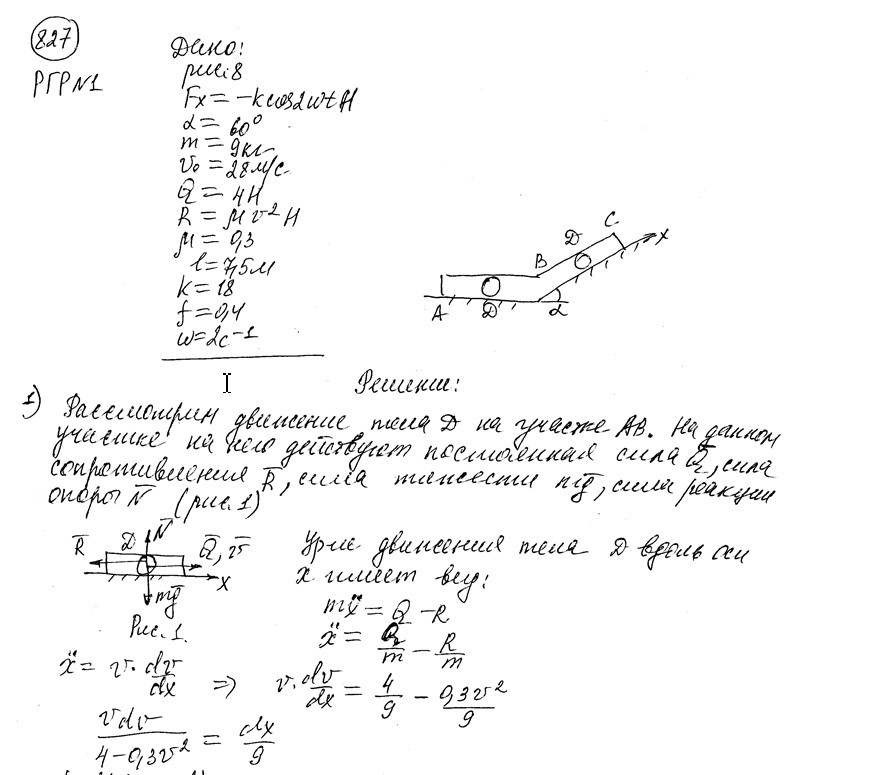 827
РГР№1
Дано:
рис. 8
Fx = -k cos2ωt H
α = 60°
m = 9 кг
v₀ = 28 м/с
Q = 4H
R = μv² H
μ = 0,3
l = 7,5м
k = 18
f = 0,4
ω = 2c⁻¹
A D B D C x α
Решение:
1) Рассмотрим движение тела D на участке АВ. На данном
участке на него действуют постоянная сила Q̅, сила
сопротивления R̅, сила тяжести mg̅, сила реакции
опоры N̅ (рис. 1)
R̅ D N̅ Q̅, v̅ x mg̅
Рис. 1.
Ур-ие движения тела D вдоль оси
x имеет вид:
mẍ = Q - R
ẍ = Q/m - R/m
ẍ = v·dv/dx ⇒ v·dv/dx = 4/9 - 0,3v²/9
vdv/(4-0,3v²) = dx/9